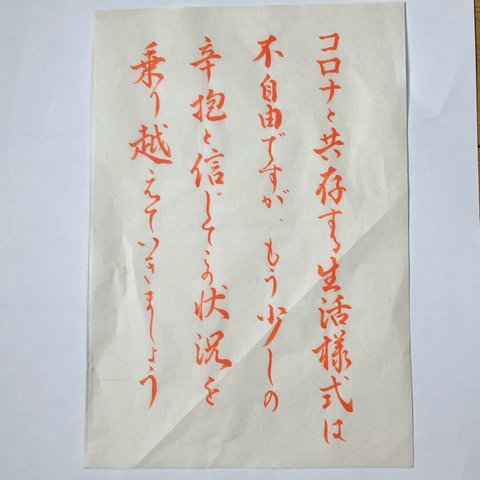 コロナと共存する生活様式は
不自由ですが、もう少しの
辛抱と信じてこの状況を
乗り越えていきましょう